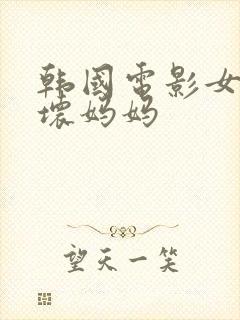 韩國電影女
壞妈妈
望天一笑